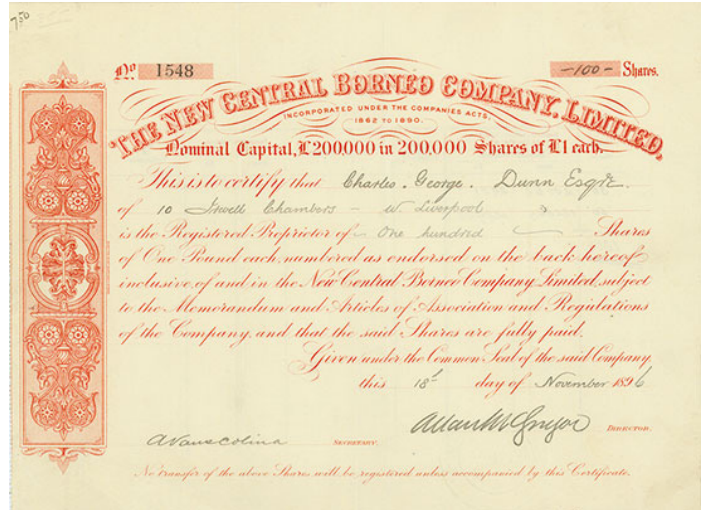 7,50
No. 1548 -100- Shares.
THE NEW CENTRAL BORNEO COMPANY, LIMITED,
INCORPORATED UNDER THE COMPANIES ACTS,
1862 TO 1890.
Nominal Capital, £200,000 in 200,000 Shares of £1 each.
This is to certify that Charles. George. Dunn Esqre.
of 10 Irwell Chambers - W. Liverpool
is the Registered Proprietor of One hundred Shares
of One Pound each, numbered as endorsed on the back hereof
inclusive, of and in the New Central Borneo Company, Limited, subject
to the Memorandum and Articles of Association and Regulations
of the Company, and that the said Shares are fully paid.
Given under the Common Seal of the said Company
this 18th day of November 1896
Allan McGregor DIRECTOR.
SECRETARY.
No transfer of the above Shares will be registered unless accompanied by this Certificate.